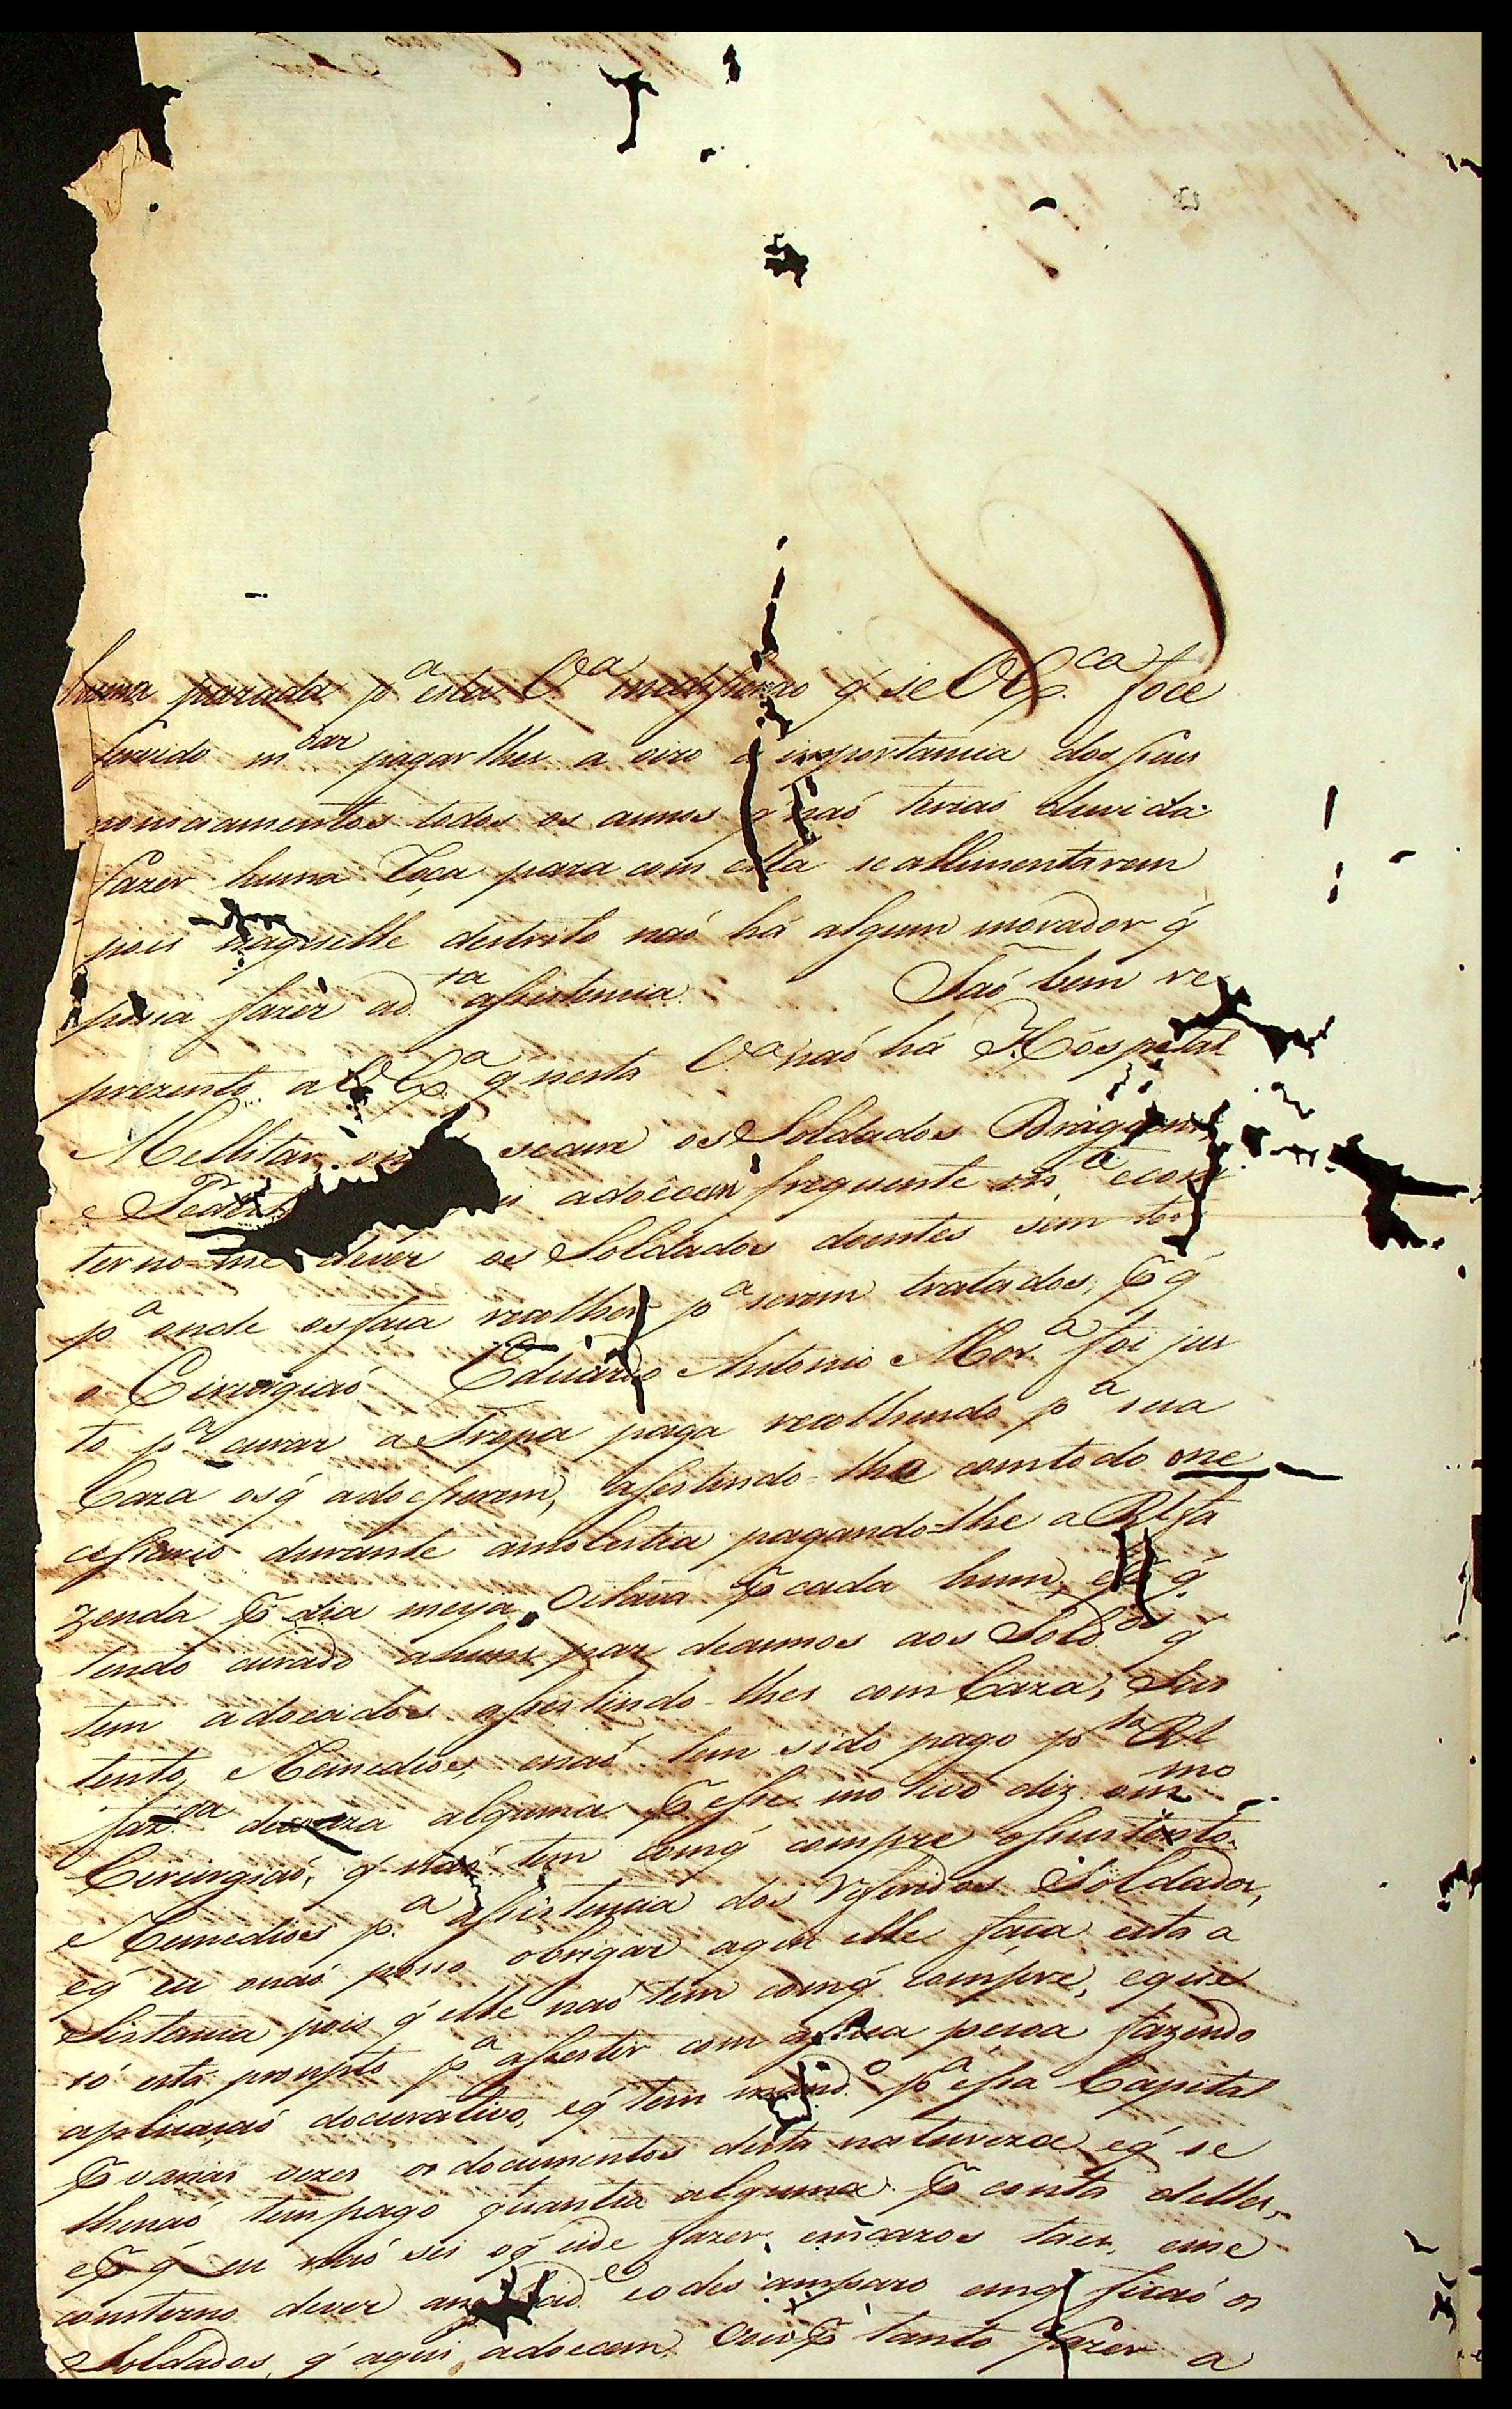 huma parada p.ª esta V.ª me difserão q̃ se V Ex.ca foce
servido m.dar pagar lhes a oiro a importancia dos seus
todos os annos q̃ naó teriaó duvida
fazer huma Roça para com ella se allimentarem
pois naquelle destrito naó há algum morador q̃
posa fazer a d.ra afsistencia. Taó bem re
prezento a V Ex.ª q̃ nesta V.ª naó há Hóspital
Mellitar, on se cure os Soldados Dragoens
e Pedest adoecem frequente m.te e cons
terno-me de ver os Soldados doentes sem ter
p.ª onde os faça recolher p.ª serem tratados, P q̃
o Cirurgiaó Eduardo Antonio Mor.ª foi jus
to p.ª curar a Tropa paga recolhendo p.ª sua
Caza os q̃ adoefserem, afsestindo-lhe com todo o ne
cefsario durante a molestia pagando-lhe a Rl fa
zenda P dia meya Oitava P cada hum, e P q̃
tendo curado a hum par de annos aos Sold.os q̃
tem adoecidos afsestindo-lhes com Caza, Sus
tento, e Remedios, e naó tem sido pago p.la Rl
faz.da de coiza alguma P efse motivo diz o m.mo
Cirurgiaó, q̃ naó tem com q̃ compre o sustento
e Remedios p.ª afsistencia dos refiridos Soldados,
e q̃ eu o naó poso obrigar a que elle faça esta a
sistancia pois q̃ elle naó tem com q̃ compre, e que
só está prompto p.ª afsestir com a sua pesoa fazendo
aplicaçaó do curativo, e q̃ tem mand.º p.ª efsa Capital
P varias vezes os documentos desta natureza e q̃ se
lhe naó tem pago quantia alguma P conta delles,
e P q̃ eu naó sei o q̃ eide fazer em cazos taes, e me
consterno de ver a e o des amparo em q̃ ficaó os
Soldados q̃ aqui adoecem, P tanto fazer a